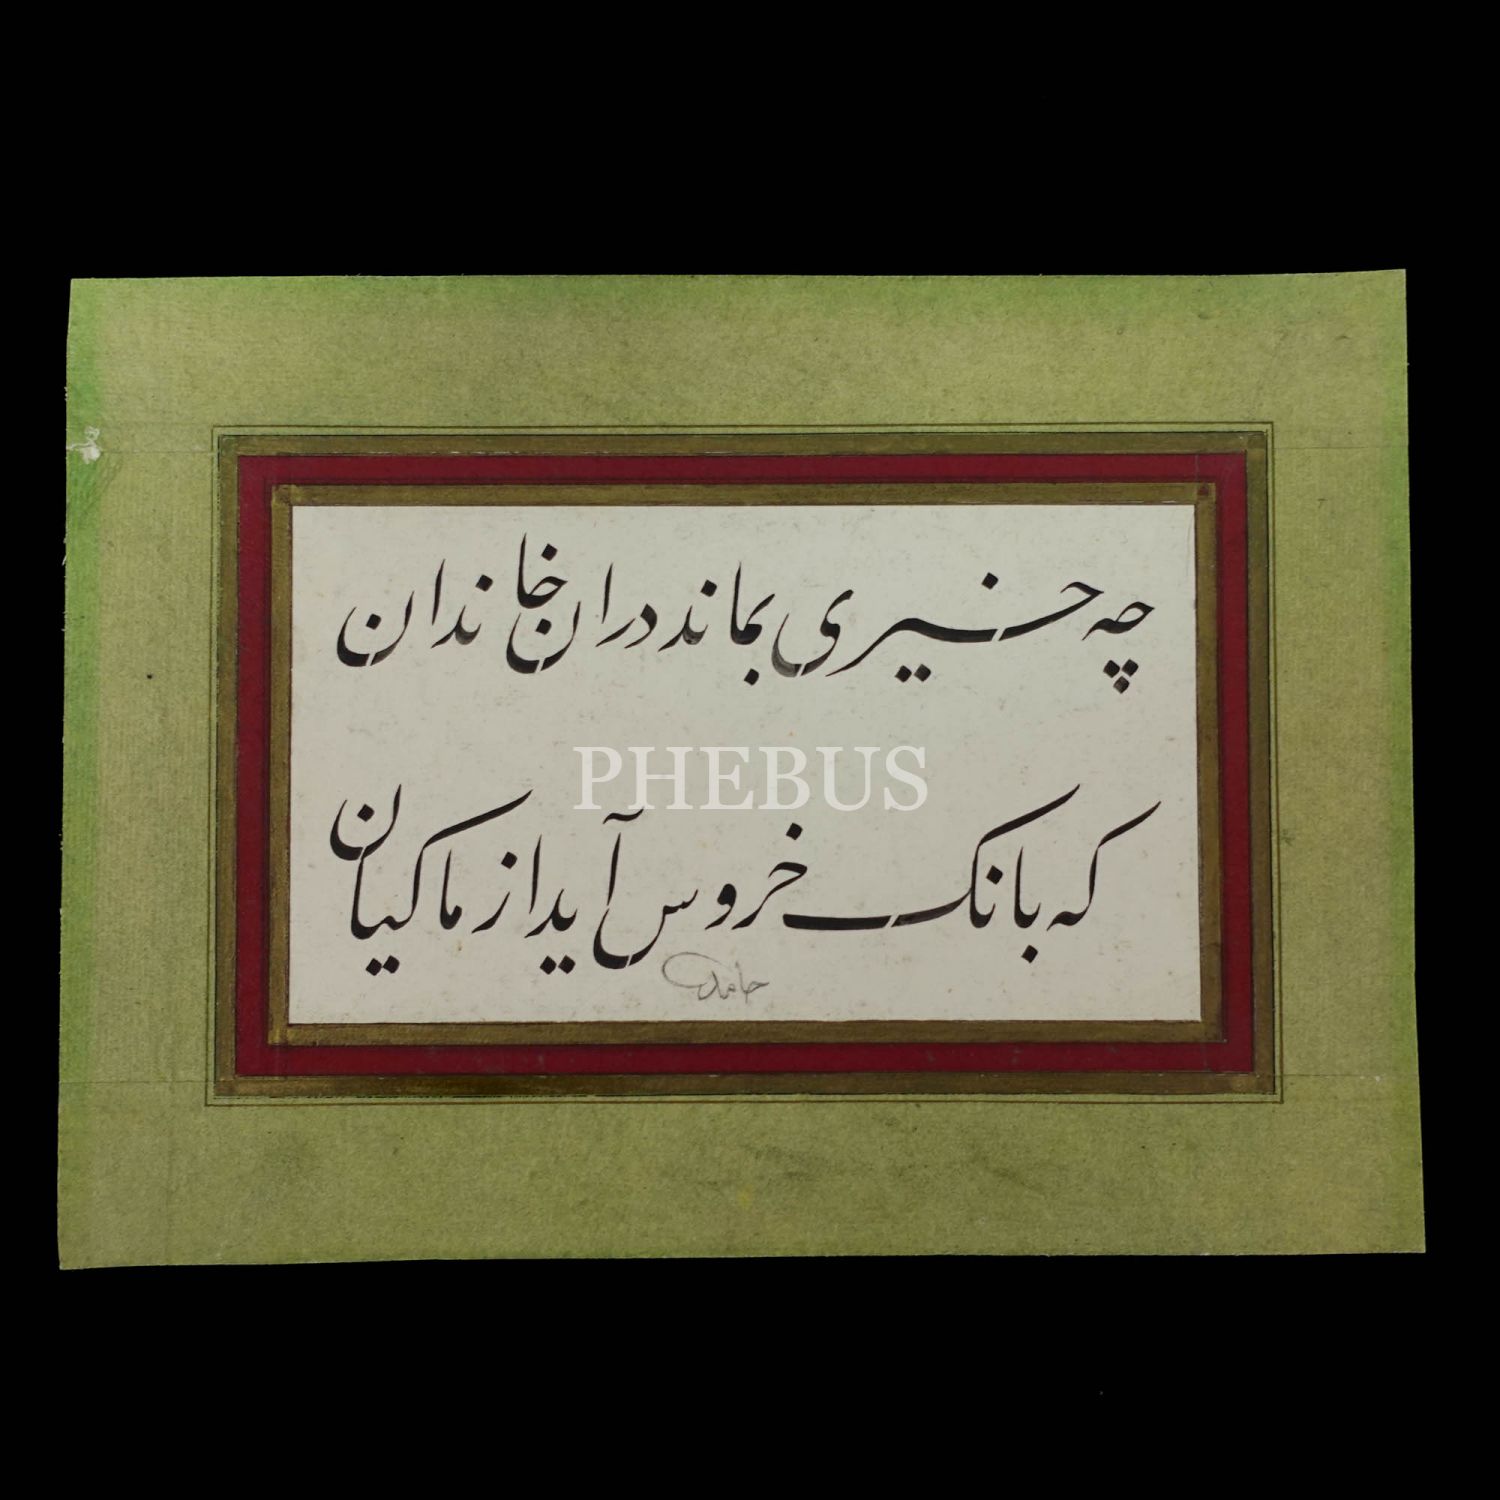 چه خیری بماند دران خاندان
PHEBUS
که بانک خروس آید از ماکیان
حامد